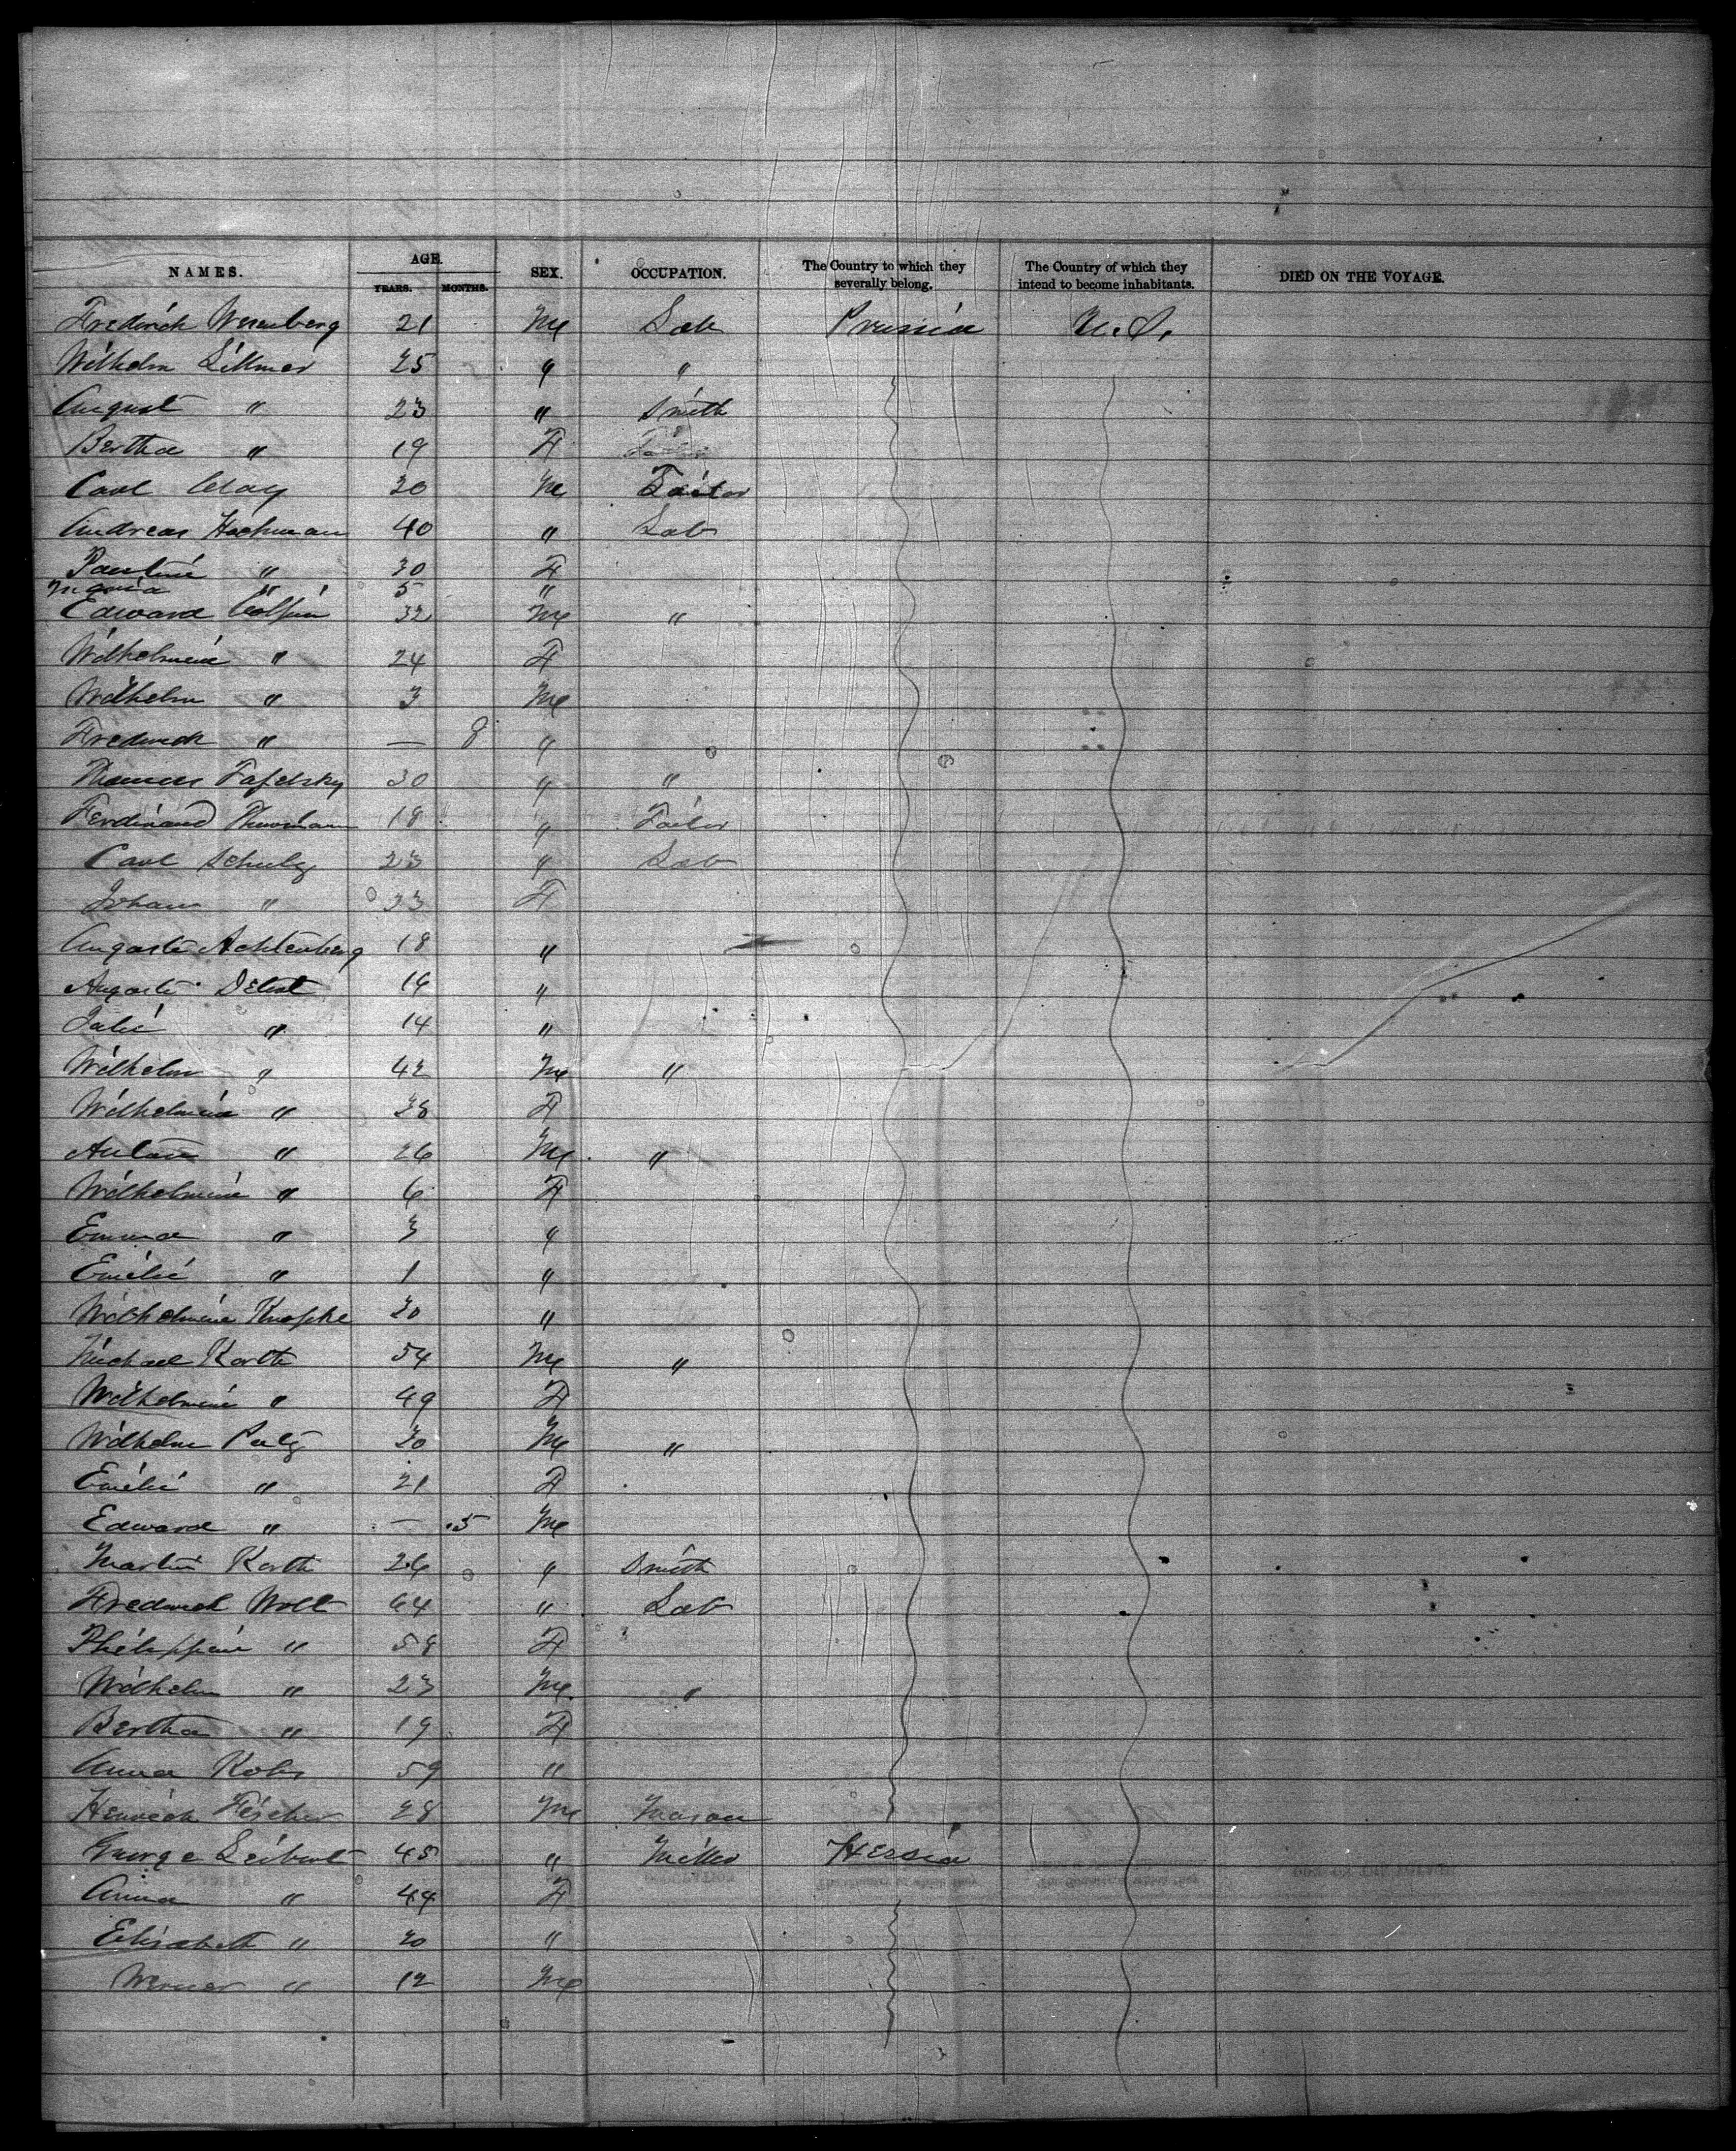 NAMES. AGE. SEX. OCCUPATION. The Country to which they severally belong. The Country of which they intend to become inhabitants. DIED ON THE VOYAGE.
YEARS. MONTHS.
Frederick Wesenberg 21 M Lab Prussia U.S.
Wilhelm Littmer 25 " "
August " 23 " Smith
Bertha " 19 F
Carl 30 M Tailor
Andreas Hachman 40 " Lab
Pauline " 30 F
Maria " 5 "
Edward 32 M "
Wilhelmine " 24 F
Wilhelm " 3 M
Frederick " — 8 "
Thomas Tafelsky 30 " "
Ferdinand 18 " Tailor
Carl Schulz 23 " Lab
Johann " 23 F
Auguste Achtenberg 18 "
Auguste 16 "
Julie " 14 "
Wilhelm " 42 M "
Wilhelmine " 38 F
Anton " 26 M "
Wilhelmine " 6 F
Emma " 3 "
Emilie " 1 "
Wilhelmine Knopke 20 "
Michael Korth 54 M "
Wilhelmine " 49 F
Wilhelm 30 M "
Emilie " 21 F
Edward " — 5 M
Martin Korth 26 " Smith
Frederick Wolt 64 " Lab
Philippine " 58 F
Wilhelm " 23 M "
Bertha " 19 F
Anna 59 "
Heinrich Fischer 28 M Mason
George Leibert 45 " Miller Hessia
Anna " 44 F
Elisabeth " 20 "
Werner " 12 M